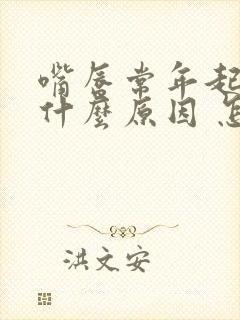 嘴唇常年起
什麼原因 怎
洪文安